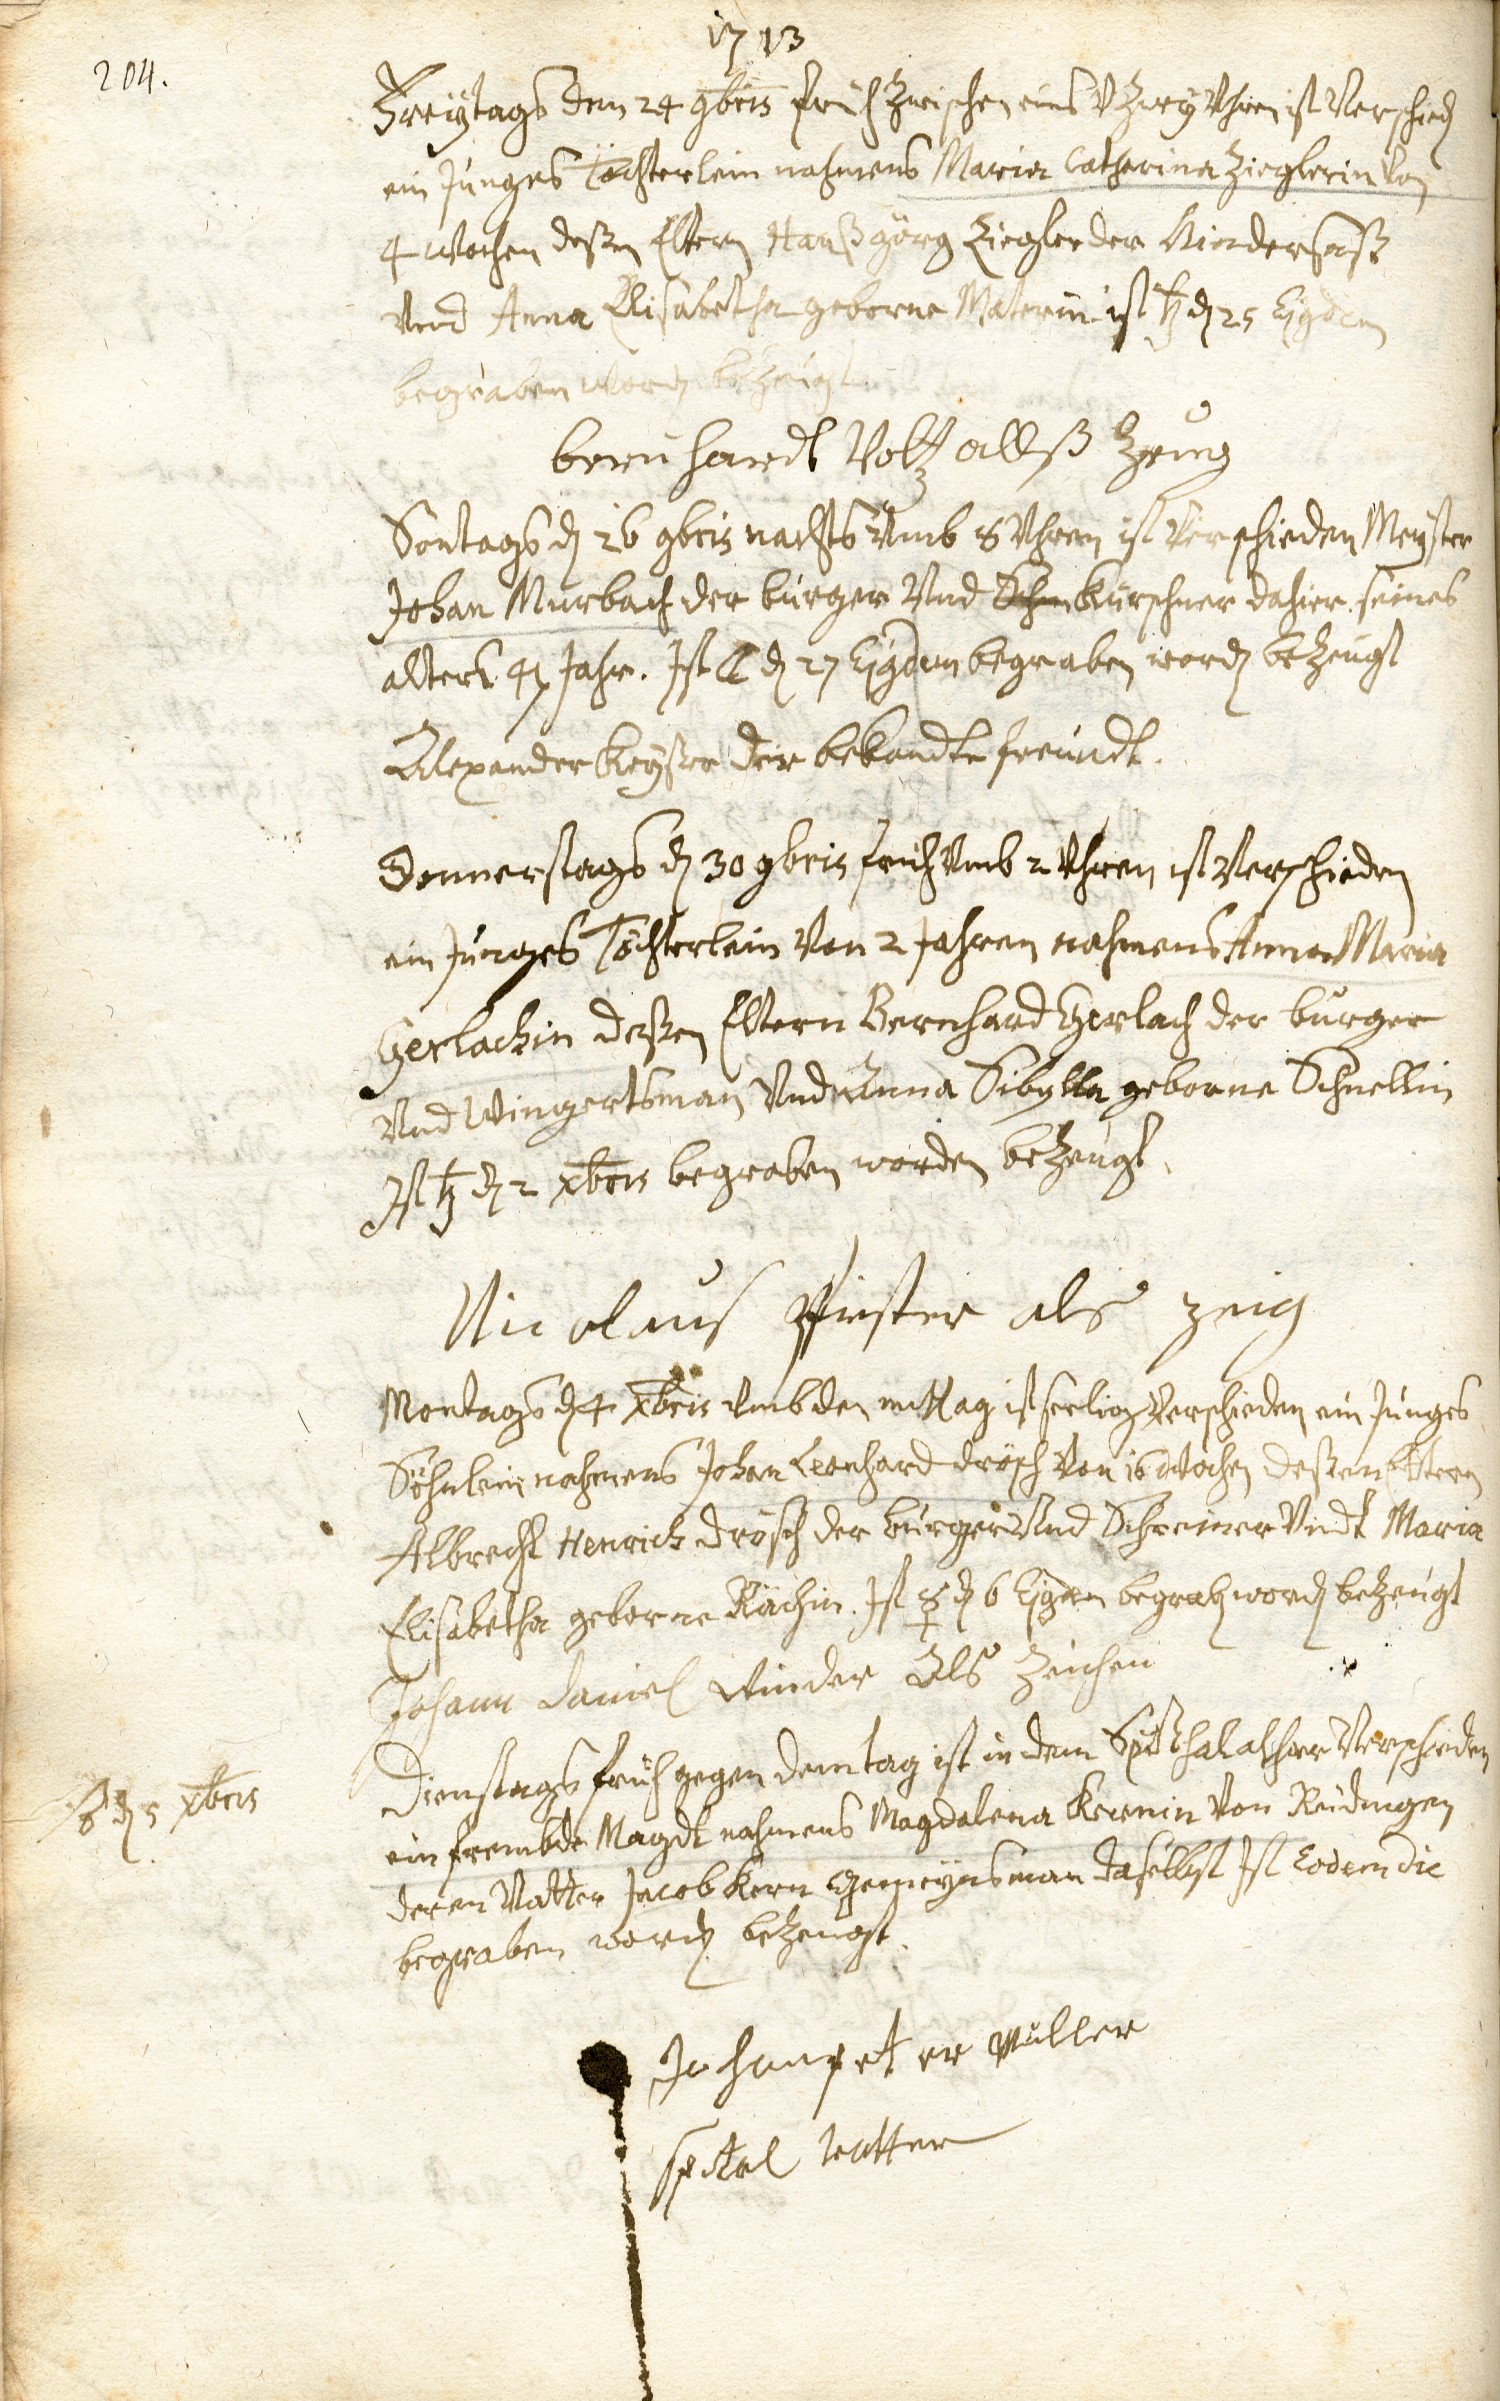 1713
204.
Freÿtags den 24 9bris früh zwischen eins V Zweÿ Uhren ist Verschied
ein Junges Töchterlein nahmens Maria Catharina Zieglerin Von
4 Wochen deßen Eltern Hanß Görg Ziegler der Kindersaß
Und Anna Elisabetha geborne Materin ist ♄ d 25 Ejgdem
begraben word bezeugt
bernhardt Voltz allß Zeug
Sontags d 26 9bris nachts Umb 8 Uhren ist Verschieden Meÿster
Johan Murbach der burger Und Kürschner dahier. seines
alters 41 Jahr. Ist ☾ d 27 Ejgdem begraben word bezeugt
Alexander Keÿser der bekandte freündt.
Donnerstags d 30 9bris früh Umb 2 Uhren ist Verschieden
ein Junges Töchterlein Von 2 Jahren nahmens Anna Maria
Gerlachin deßen Eltern Bernhard Gerlach der burger
Und Wingertsman Und Anna Sibylla geborne Schnellin
Ist ♄ d 2 xbris begraben worden bezeugt.
Nicolaus Pfister als zeig
Montags d 4 xbris Umb den mittag ist seelig Verschieden ein Junges
Söhnlein nahmens Johan Leonhard Drösch Von 16 Wochen deßen Eltern
Albrecht Henrich Drösch der burger Und Schreiner Undt Maria
Elisabetha geborne Rächin. Ist ☿ d 6 Ejgdem begrab word bezeugt
Johann Daniel Winder Als Zeichen
♂ d 5 xbris
Dienstags früh gegen dem tag ist in dem Spitthal alhier Verschieden
ein frembde Magdt nahmens Magdalena Kernin Von Rüdingen
deren Vatter Jacob Kern Gemeÿnsman daselbst Ist Eodem die
begraben word bezeugt.
Johanpeter Müller
spital Vatter